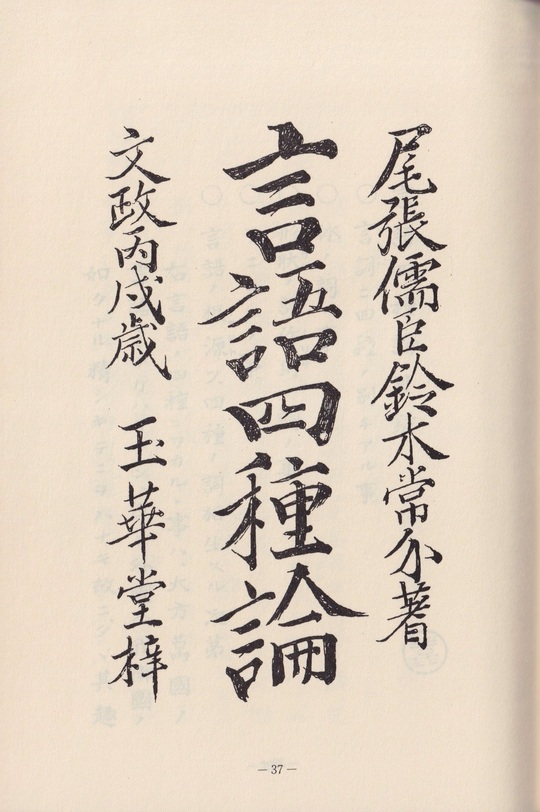 尾張儒臣鈴木常介著
言語四種論
文政丙戌歳　玉華堂梓
— 37 —